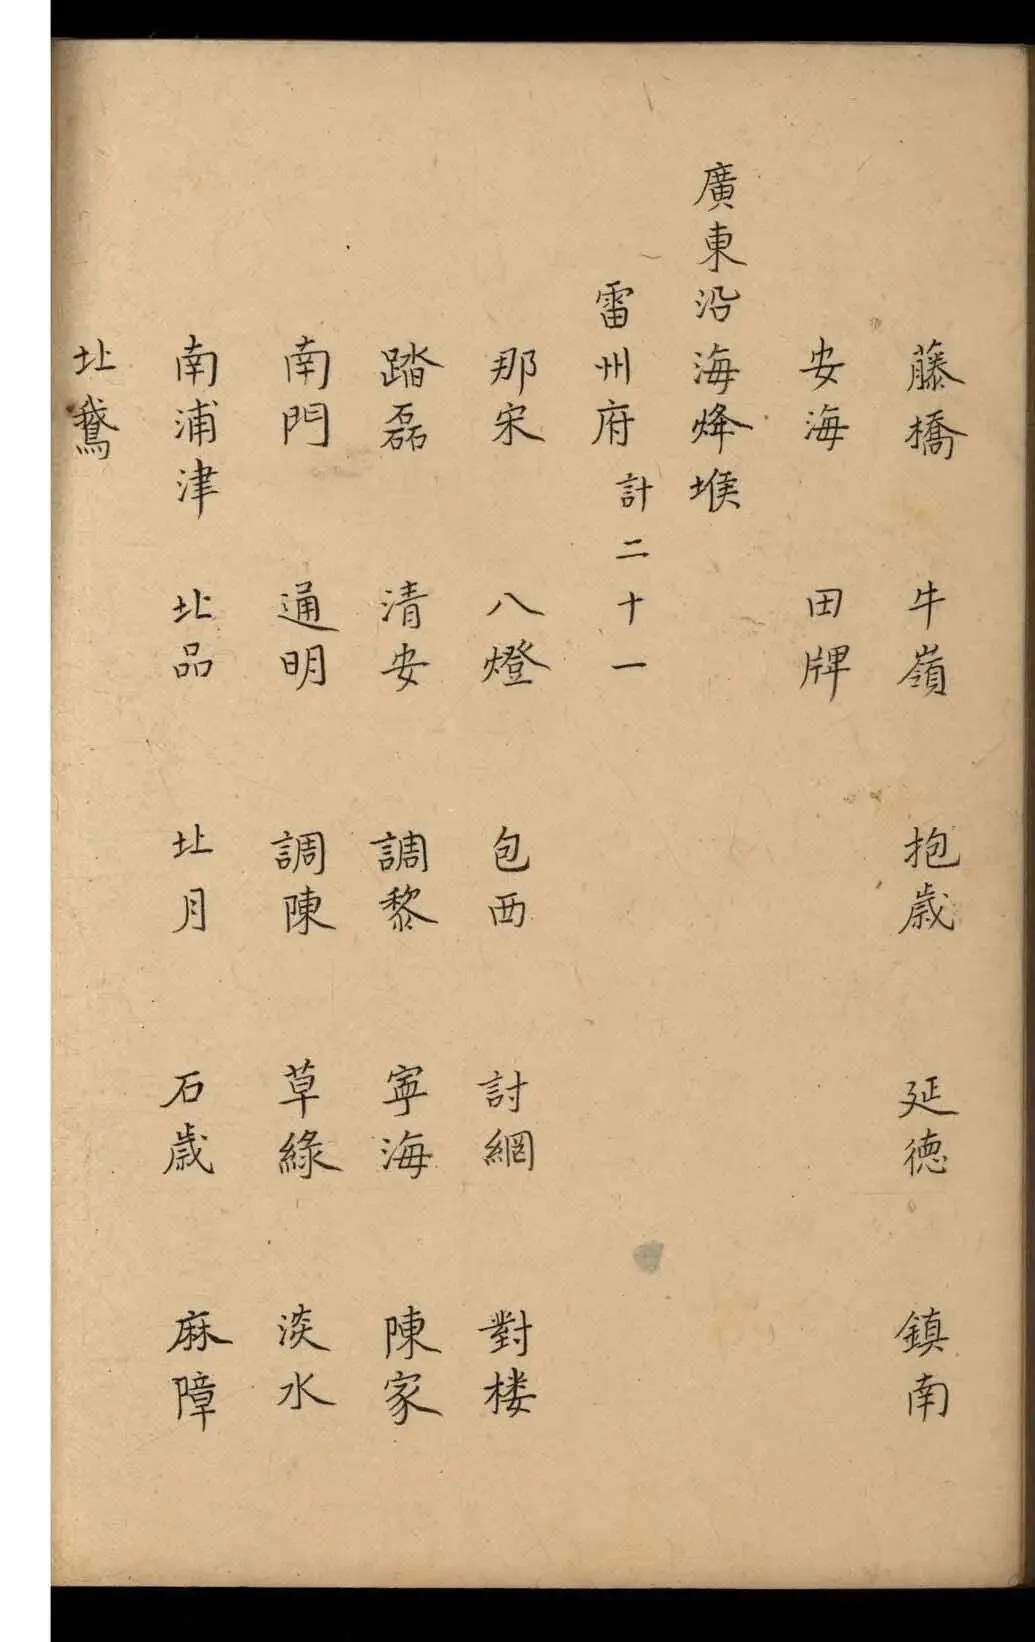 藤橋 牛嶺 抱歳 延德 鎮南
安海 田牌
廣東沿海烽堠
雷州府計二十一
那宋 八燈 包西 討網 對楼
踏磊 清安 調黎 寧海 陳家
南門 通明 調陳 草綠 淡水
南浦津 北品 北月 石歳 麻障
北鵞